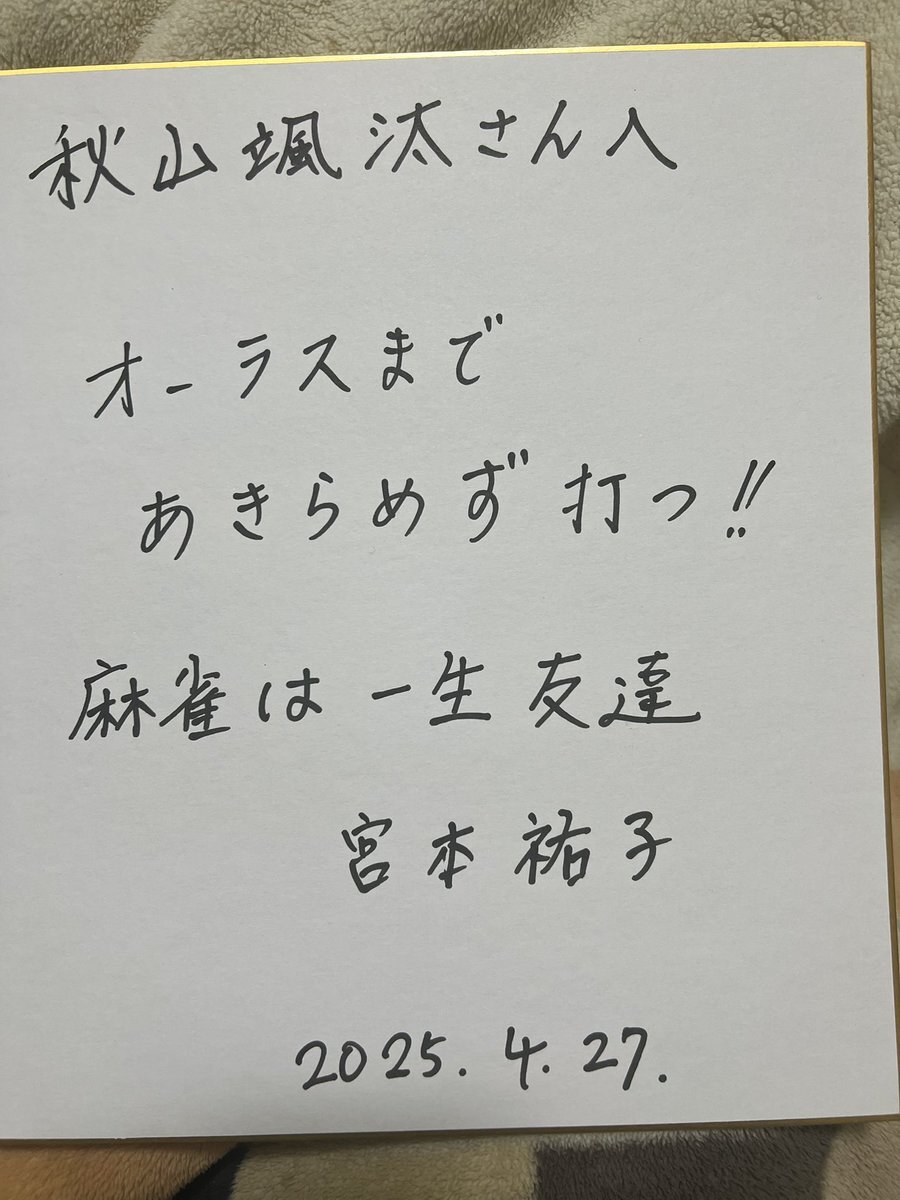 秋山颯汰さんへ
オーラスまで
あきらめず打つ!!
麻雀は一生友達
宮本祐子
2025.4.27.